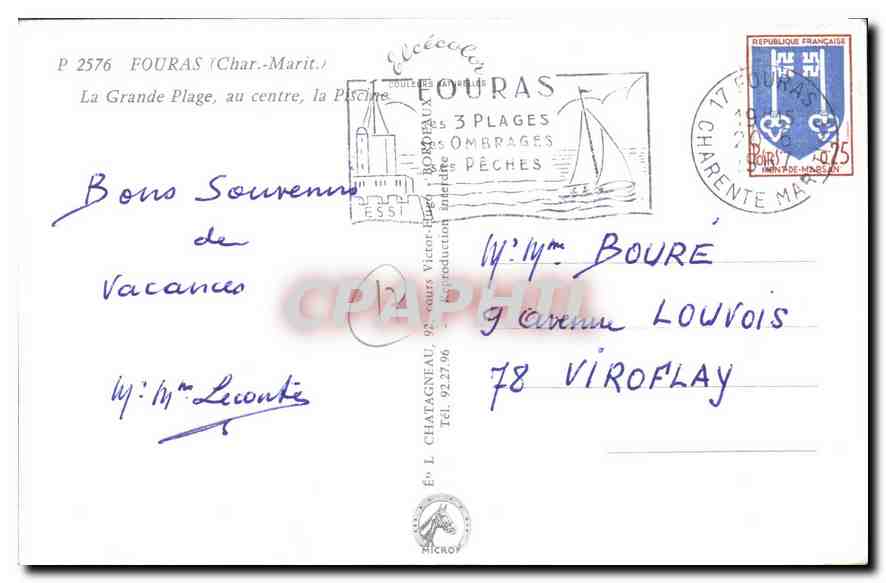 P 2576 FOURAS (Char.-Marit.)
La Grande Plage, au centre, la Piscine
Elcécolor
COULEURS NATURELLES
FOURAS
ses 3 PLAGES
ses OMBRAGES
ses PÊCHES
ESSI
17 FOURAS
19H
CHARENTE MARIT
REPUBLIQUE FRANÇAISE
POSTES
0,25
MONT-DE-MARSAN
Bons Souvenirs
de
Vacances
Mr Mme Leconte
12
CPAPHIL
Mr Mme BOURÉ
9 avenue LOUVOIS
78 VIROFLAY
Édts L. CHATAGNEAU, 92, cours Victor-Hugo - BORDEAUX
Tél. 92.27.96 - Reproduction interdite
MICROF